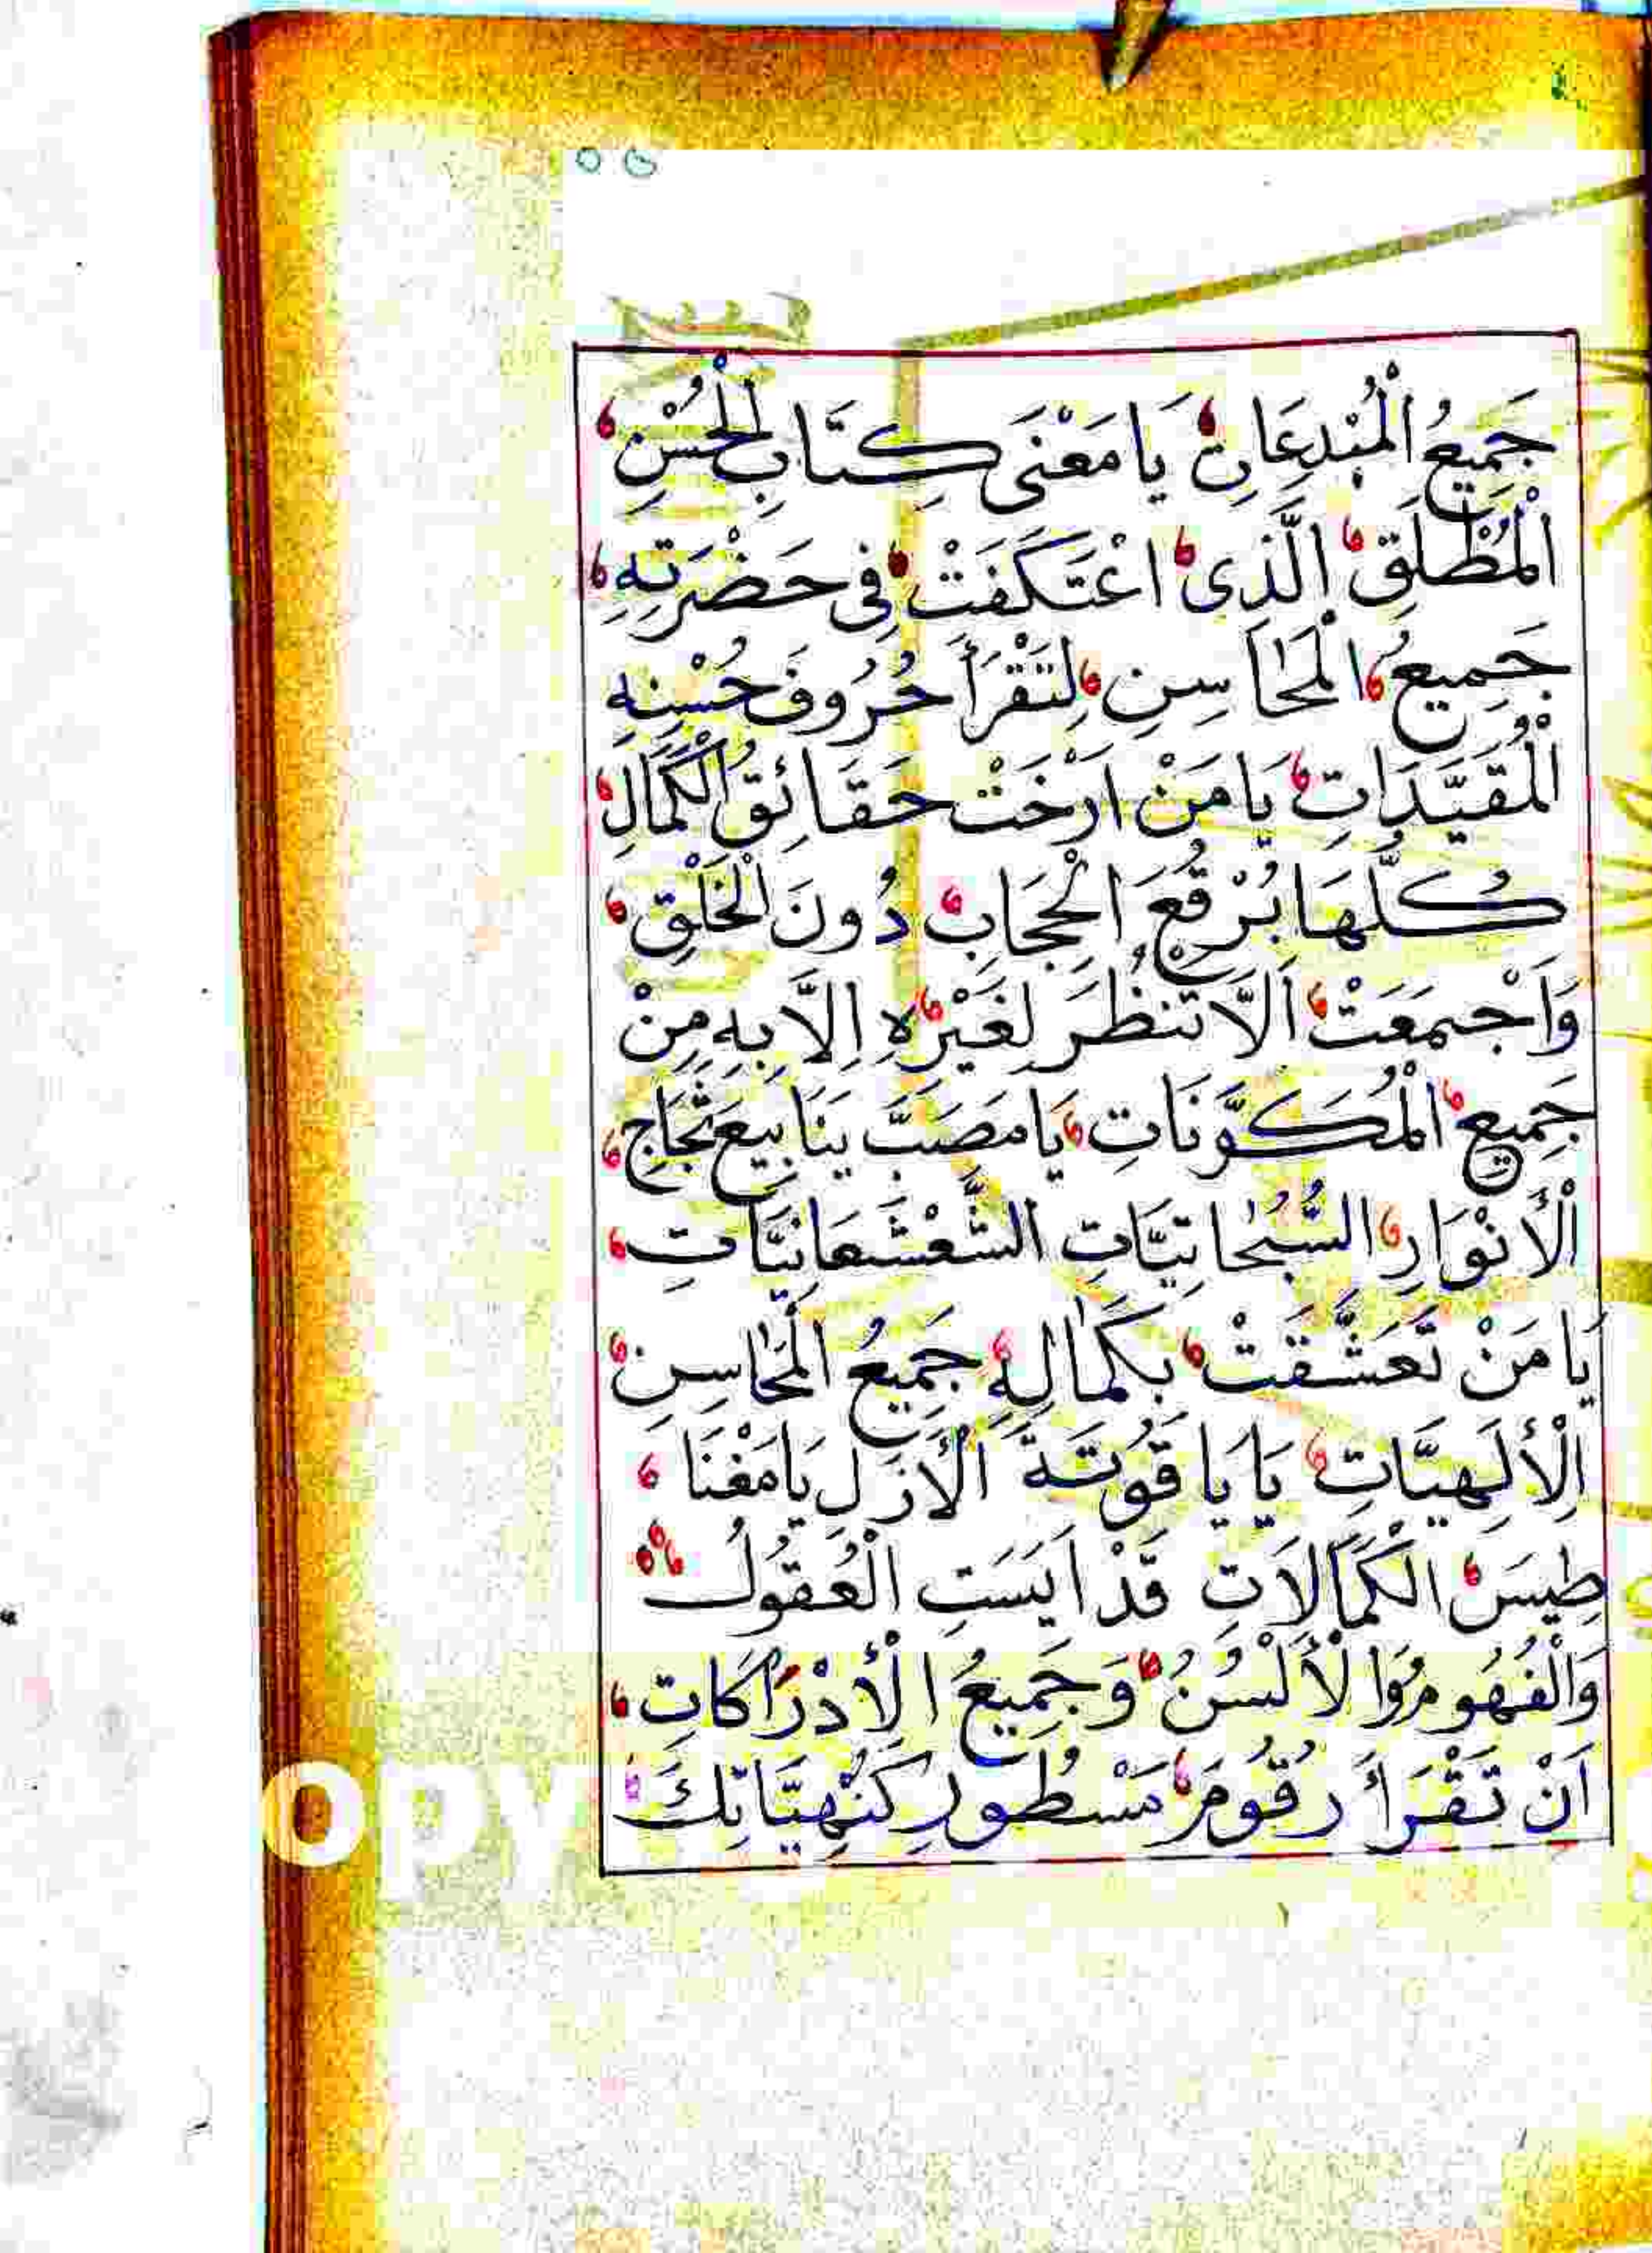 جَمِيعُ الْمُبْدِعَاتِ يَا مَعْنَى كِتَابِ الْحُسْنِ
الْمُطْلَقِ الَّذِى اعْتَكَفَتْ فِى حَضْرَتِهِ
جَمِيعُ الْمَحَاسِنِ لِتَقْرَأَ حُرُوفَ حُسْنِهِ
الْمُقَيَّدَاتِ يَا مَنْ اَرْخَتْ حَقَائِقُ الْكَمَالِ
كُلُّهَا بُرْقُعَ الْحِجَابِ دُونَ الْخَلْقِ
وَاَجْمَعَتْ اَلَّا تَنْظُرَ لِغَيْرِهِ اِلَّا بِهِ مِنْ
جَمِيعِ الْمُكَوَّنَاتِ يَا مَصَبَّ يَنَابِيعَ ثَجَّاجِ
الْأَنْوَارِ السُّبُحَاتِيَّاتِ الشَّعْشَعَانِيَّاتِ
يَا مَنْ تَعَشَّقَتْ بِكَمَالِهِ جَمِيعُ الْمَحَاسِنِ
الْاِلَهِيَّاتِ يَا يَاقُوتَةَ الْأَزَلِ يَا مَغْنَا
طِيسَ الْكَمَالَاتِ قَدْ اَيِسَتِ الْعُقُولُ
وَالْفُهُومُ وَالْأَلْسُنُ وَجَمِيعُ الْاِدْرَاكَاتِ
اَنْ تَقْرَأَ رُقُومَ مَسْطُورِ كُنْهِيَّاتِكَ
OPY